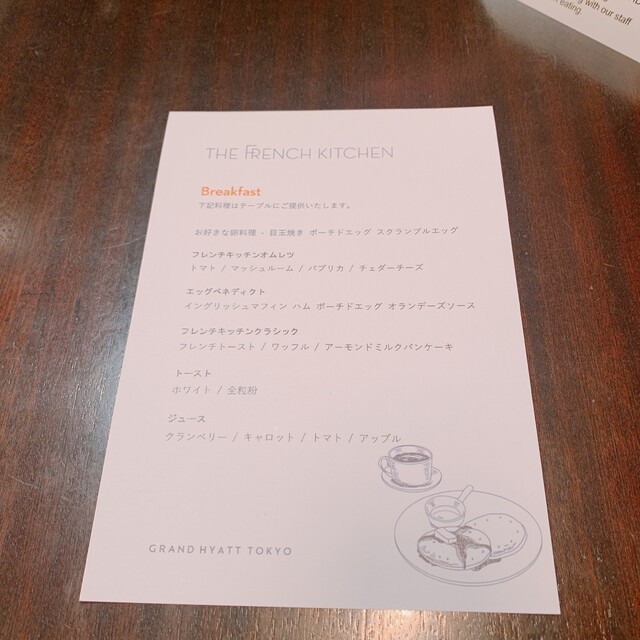 ng with our staff
eating.
THE FRENCH KITCHEN
Breakfast
下記料理はテーブルにご提供いたします。
お好きな卵料理 - 目玉焼き ポーチドエッグ スクランブルエッグ
フレンチキッチンオムレツ
トマト / マッシュルーム / パプリカ / チェダーチーズ
エッグベネディクト
イングリッシュマフィン ハム ポーチドエッグ オランデーズソース
フレンチキッチンクラシック
フレンチトースト / ワッフル / アーモンドミルクパンケーキ
トースト
ホワイト / 全粒粉
ジュース
クランベリー / キャロット / トマト / アップル
GRAND HYATT TOKYO